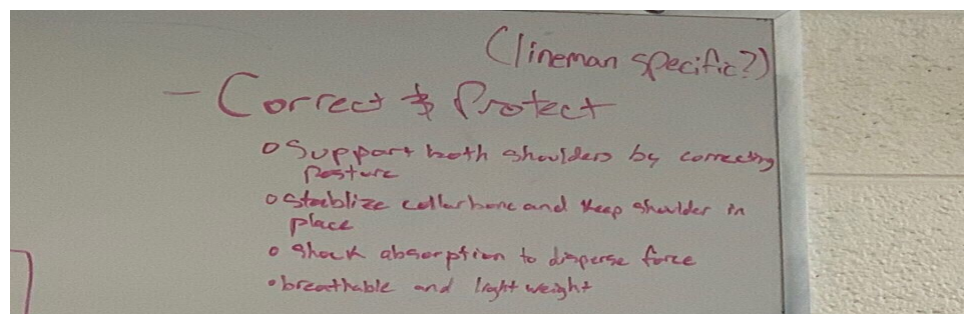 (lineman specific?)
- Correct & Protect
o Support both shoulders by correcting
posture
o Stablize collarbone and keep shoulder in
place
o Shock absorption to disperse force
• breathable and lightweight